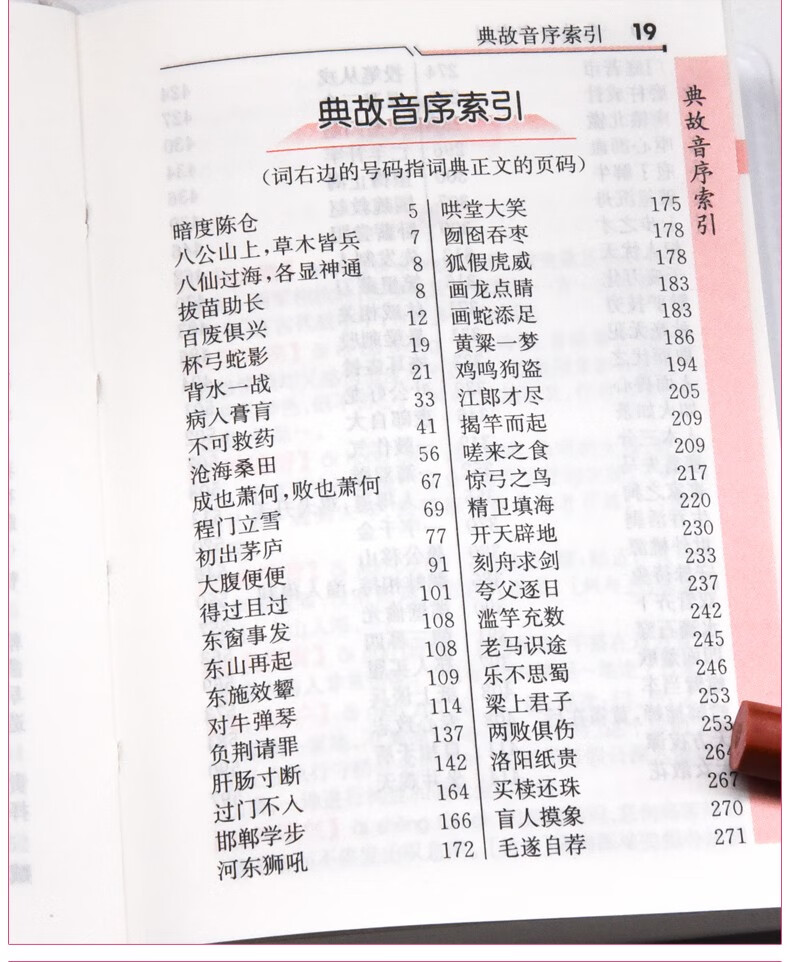 典故音序索引 19
典故音序索引
(词右边的号码指词典正文的页码)
暗度陈仓 5
八公山上,草木皆兵 7
八仙过海,各显神通 8
拔苗助长 8
百废俱兴 12
杯弓蛇影 19
背水一战 21
病入膏肓 33
不可救药 41
沧海桑田 56
成也萧何,败也萧何 67
程门立雪 69
初出茅庐 77
大腹便便 91
得过且过 101
东窗事发 108
东山再起 108
东施效颦 109
对牛弹琴 114
负荆请罪 137
肝肠寸断 142
过门不入 164
邯郸学步 166
河东狮吼 172
哄堂大笑 175
囫囵吞枣 178
狐假虎威 178
画龙点睛 183
画蛇添足 183
黄粱一梦 186
鸡鸣狗盗 194
江郎才尽 205
揭竿而起 209
嗟来之食 209
惊弓之鸟 217
精卫填海 220
开天辟地 230
刻舟求剑 233
夸父逐日 237
滥竽充数 242
老马识途 245
乐不思蜀 246
梁上君子 253
两败俱伤 253
洛阳纸贵 264
买椟还珠 267
盲人摸象 270
毛遂自荐 271
典故音序索引